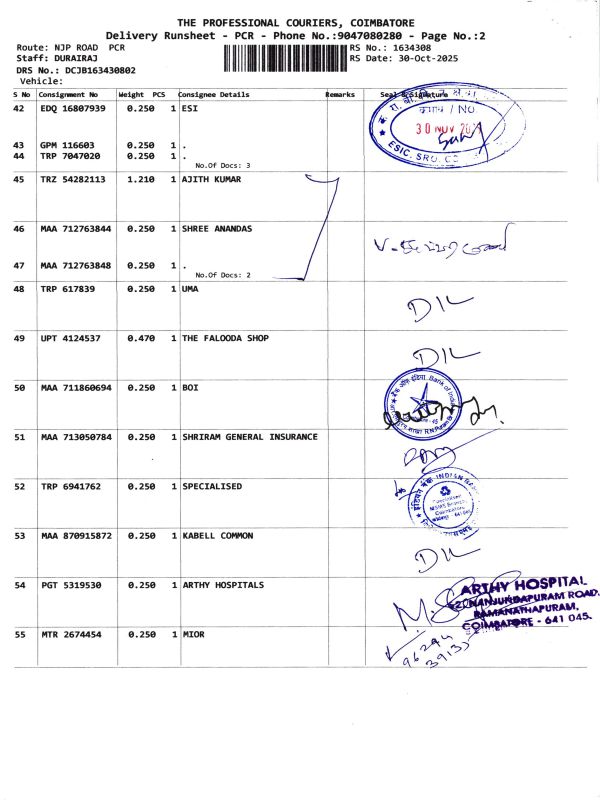 THE PROFESSIONAL COURIERS, COIMBATORE
Delivery Runsheet - PCR - Phone No.:9047080280 - Page No.:2
Route: NJP ROAD PCR
RS No.: 1634308
Staff: DURAIRAJ
RS Date: 30-Oct-2025
DRS No.: DCJB163430802
Vehicle:
S No Consignment No Weight PCS Consignee Details Remarks Seal & Signature
42 EDQ 16807939 0.250 1 ESI
/ NO.
30 NOV
ESIC, SRO, CO
43 GPM 116603 0.250 1 .
44 TRP 7047020 0.250 1 .
No.Of Docs: 3
45 TRZ 54282113 1.210 1 AJITH KUMAR
46 MAA 712763844 0.250 1 SHREE ANANDAS
47 MAA 712763848 0.250 1 .
No.Of Docs: 2
48 TRP 617839 0.250 1 UMA
D/L
49 UPT 4124537 0.470 1 THE FALOODA SHOP
D/L
50 MAA 711860694 0.250 1 BOI
Bank of India
51 MAA 713050784 0.250 1 SHRIRAM GENERAL INSURANCE
52 TRP 6941762 0.250 1 SPECIALISED
INDIAN BANK
53 MAA 870915872 0.250 1 KABELL COMMON
D/L
54 PGT 5319530 0.250 1 ARTHY HOSPITALS
ARTHY HOSPITAL
NANJUNDAPURAM ROAD,
RAMANATHAPURAM,
COIMBATORE - 641 045.
55 MTR 2674454 0.250 1 MIOR